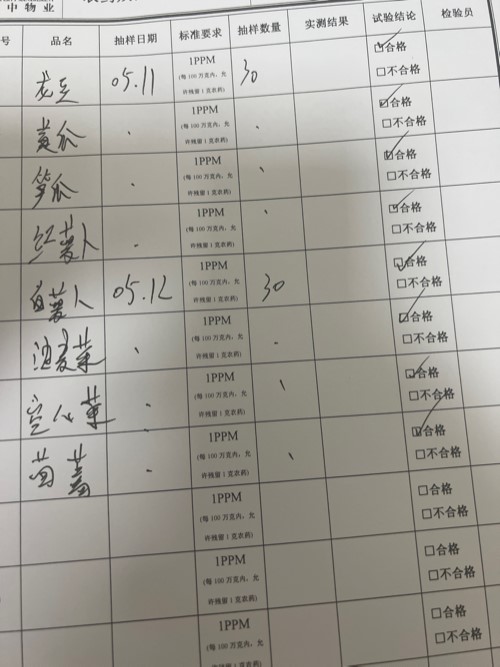 中物业
号 品名 抽样日期 标准要求 抽样数量 实测结果 试验结论 检验员
龙豆 05.11 1PPM 30 ☑合格
(每100万克内，允
许残留1克农药) □不合格
黄瓜 1PPM ☑合格
(每100万克内，允
许残留1克农药) □不合格
笋瓜 1PPM ☑合格
(每100万克内，允
许残留1克农药) □不合格
红萝人 1PPM ☑合格
(每100万克内，允
许残留1克农药) □不合格
白萝人 05.12 1PPM 30 ☑合格
(每100万克内，允
许残留1克农药) □不合格
油麦菜 1PPM ☑合格
(每100万克内，允
许残留1克农药) □不合格
空心菜 1PPM ☑合格
(每100万克内，允
许残留1克农药) □不合格
1PPM ☑合格
(每100万克内，允
许残留1克农药) □不合格
1PPM □合格
(每100万克内，允
许残留1克农药) □不合格
1PPM □合格
(每100万克内，允
许残留1克农药) □不合格
1PPM □合格
(每100万克内，允
许残留1克农药) □不合格